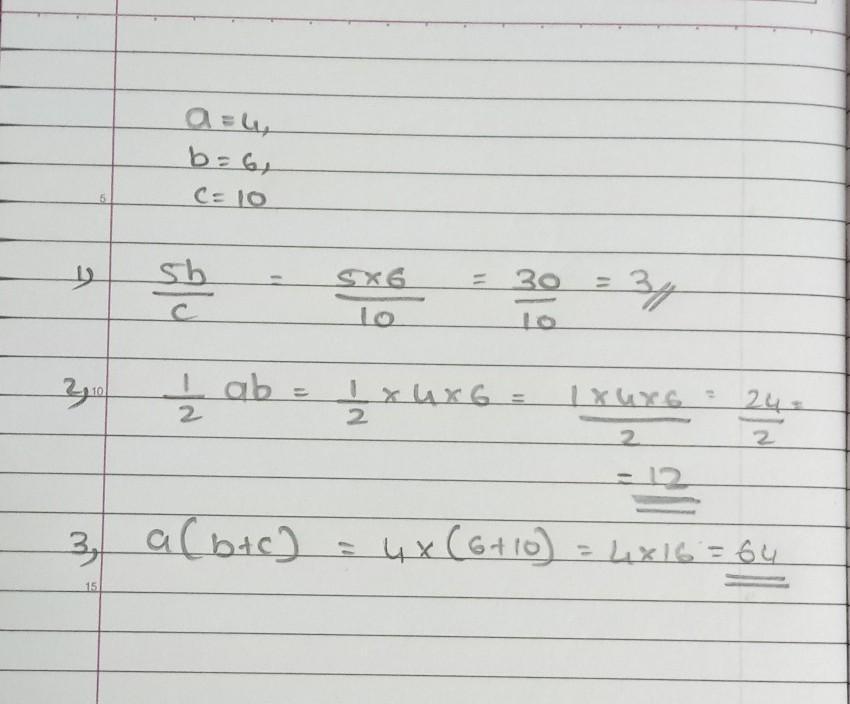 a = 4,
b = 6,
c = 10
5
1) 5b/c = 5×6/10 = 30/10 = 3//
10
2, 1/2 ab = 1/2 × 4 × 6 = 1×4×6/2 = 24/2 =
= 12
3, a(b+c) = 4×(6+10) = 4×16 = 64
15